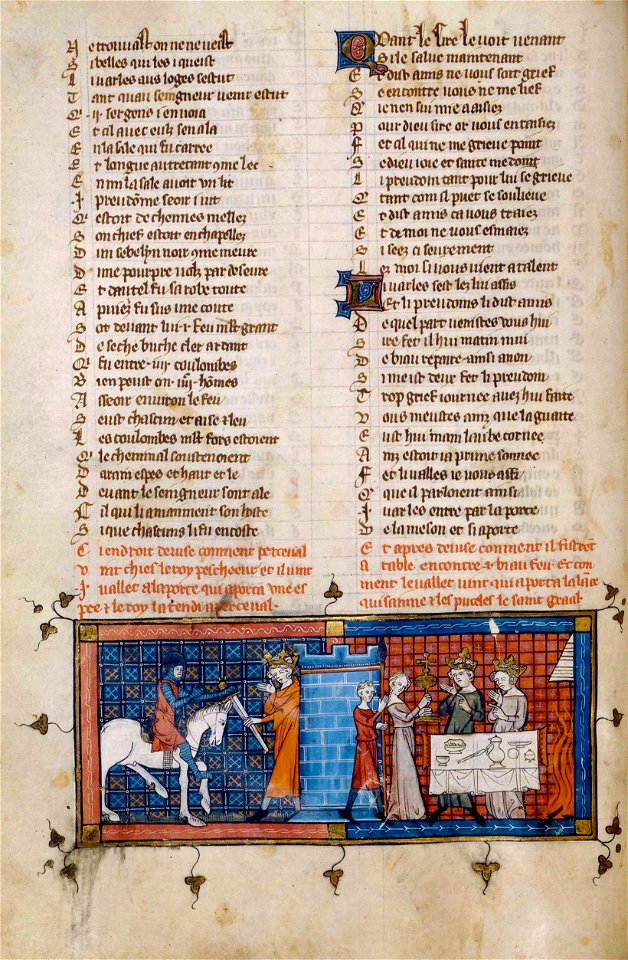 A e trouvast on ne ne veist
S i belles qui les i queist
L i varles aus loges sestut
T ant quau seingneur venir estut
Q ij sergens i envoia
E t cil avec eulz sen ala
E n la sale qui fu carree
E t longue autretant qme lee
E n mi la sale avoit un lit
I preudōme seoir i vit
Q estoit de chennes mellez
S on chief estoit enchapellez
D un sebelin noir qme meure
D une pourpre volz par deseure
E t dautel fu sa robe toute
A puiez fu sus une coute
S ot devant lui i feu mlt grant
D e seche buche cler ardant
Q fu entre iiij coulombes
B ien peust on iiijᶜ hōmes
A sseoir environ le feu
S eust chascun et aise et leu
L es coulombes mlt fors estoient
Q le cheminal soustenoient
D arain espes et haut et le
D evant le seingneur sont ale
C il qui li amainnent son hoste
S i que chascuns li fu encoste
C i endroit devise comment perceval
v int chies le roy pescheeur et il vint
i vallet a la porte qui aporta une es
pee et le roy la tendi a perceval
Quant le sire le voit venant
S i le salue maintenant
E t dist amis ne vous soit grief
S e encontre vous ne me lief
Q ie nen sui mie aaisiez
P our dieu sire or vous en taisiez
F et cil qui ne me grieve point
S e dieu ioie et sante me doint
L i preudom tant pour lui se grieve
Q tant com il puet se soulieve
E t dist amis ca vous traiez
E t de moi ne vous esmaiez
S i seez ci seurement
L ez moi si vous vient a talent
Li varles sest lez lui assis
Et li preudoms li dist amis
D e quel part venistes vous hui
S ire fet il hui matin mui
D e biau repaire ainsi a non
S i meist dex fet li preudom
T rop grief iournee avez hui faite
V ous meustes ainz que la guaite
E ust hui main laube cornee
A inz estoit ia prime sonnee
F et li valles ie vous affi
Q que il parloient ainsi
I varles entre par la porte
D e la meson et si aporte
E t apres devise comment il sistrent
a table encontre i biau feu et com
ment le vallet vint qui aporta la lance
qui sainne et les puceles le saint graal